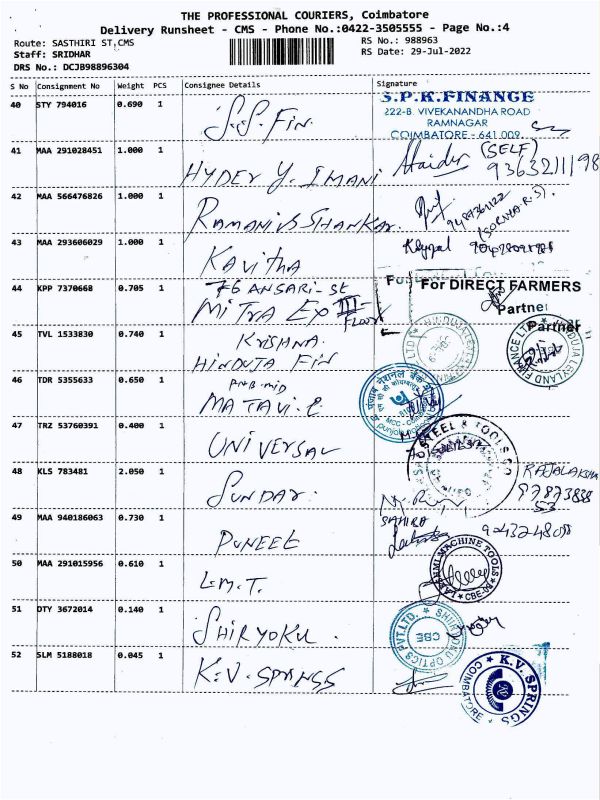 THE PROFESSIONAL COURIERS, Coimbatore
Delivery Runsheet - CMS - Phone No.:0422-3505555 - Page No.:4
Route: SASTHIRI ST,CMS
Staff: SRIDHAR
DRS No.: DCJB98896304
RS No.: 988963
RS Date: 29-Jul-2022
S No Consignment No Weight PCS Consignee Details Signature
40 STY 794016 0.690 1 S.S. FIN.
S.P.K.FINANCE
222-B. VIVEKANANDHA ROAD
RAMNAGAR
COIMBATORE - 641 009.
41 MAA 291028451 1.000 1 HYDER Y. IMANI Haider (SELF)
9363211198
42 MAA 566476826 1.000 1 RAMANIVS SHANKAR.
43 MAA 293606029 1.000 1 KAVITHA
44 KPP 7370668 0.705 1 76 ANSARI-St
MITRA EXP III-
FLOOR
For DIRECT FARMERS
Partner
Partner
45 TVL 1533830 0.740 1 KRISHNA.
HINDUJA FIN
46 TDR 5355633 0.650 1 PNB-MID
MATAVI.E
47 TRZ 53760391 0.400 1 UNIVERSAL
STEEL & TOOLS CO
48 KLS 783481 2.050 1 SUNDAR.
RAJALAKSHM
97873838
53
49 MAA 940186063 0.730 1 PUNEET
SAHIRA
50 MAA 291015956 0.610 1 L.M.T.
LAKSHMI MACHINE TOOLS
51 DTY 3672014 0.140 1 SHIRYOKU.
OPTICS PVT.LTD.
CBE
52 SLM 5188018 0.045 1 K.V. SPRINGS
K.V. SPRINGS
COIMBATORE